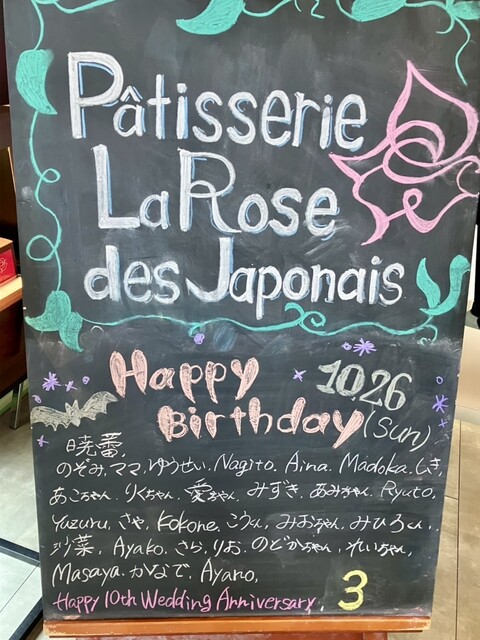 Pâtisserie
La Rose
des Japonais
Happy
Birthday
10.26
(Sun)
のぞみ, ママ, ゆうせい, Nagito. Aina. Madoka.
あこちゃん. りくちゃん. 愛ちゃん. みずき. あみちゃん. Ryuto,
Yuzuru. さや. Kokone. こうくん. みおちゃん. みひろくん.
沙菜, Ayako. さら. りお. のどかちゃん. れいちゃん,
Masaya. かなで, Ayano,
Happy 10th Wedding Anniversary 3